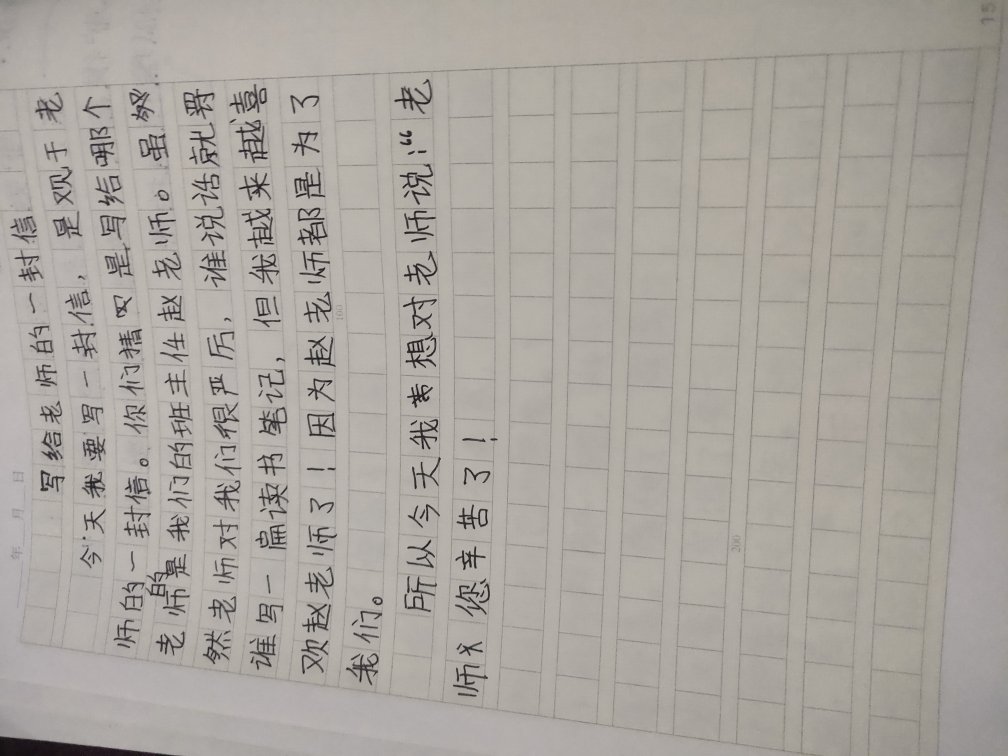 年 月 日
写给老师的一封信
今天我要写一封信，是观于老
师的一封信。你们猜是写给哪个
老师的是我们的班主任赵老师。虽
然老师对我们很严厉，谁说话就罚
谁写一扁读书笔记，但我越来越喜
欢赵老师了！因为赵老师都是为了
我们。
所以今天我想对老师说：“老
师您辛苦了！
160
200
15